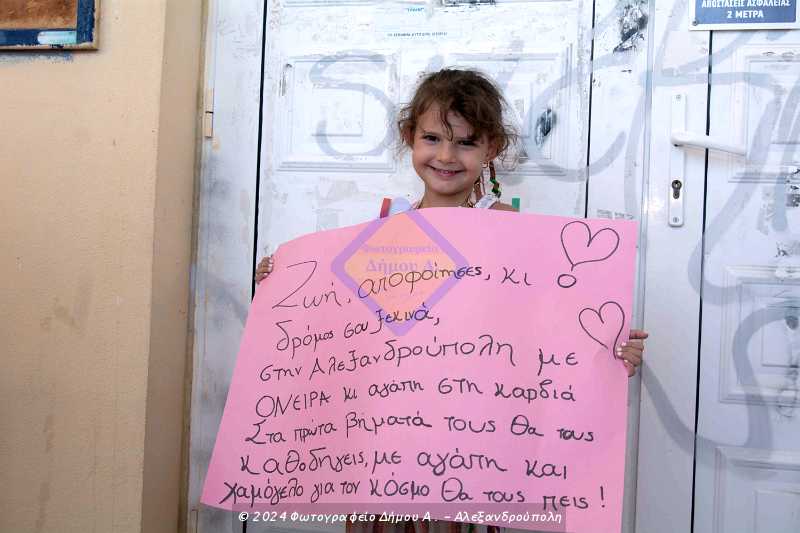 ΑΠΟΣΤΑΣΕΙΣ ΑΣΦΑΛΕΙΑΣ
2 ΜΕΤΡΑ
Φωτογραφείο
Δήμου Α.
Ζωή, αποφοίτησες, κι ο
δρόμος σου ξεκινά,
στην Αλεξανδρούπολη με
ΟΝΕΙΡΑ κι αγάπη στη καρδιά
Στα πρώτα βήματά τους θα τους
καθοδηγείς, με αγάπη και
χαμόγελο για τον κόσμο θα τους πεις!
© 2024 Φωτογραφείο Δήμου Α. - Αλεξανδρούπολη